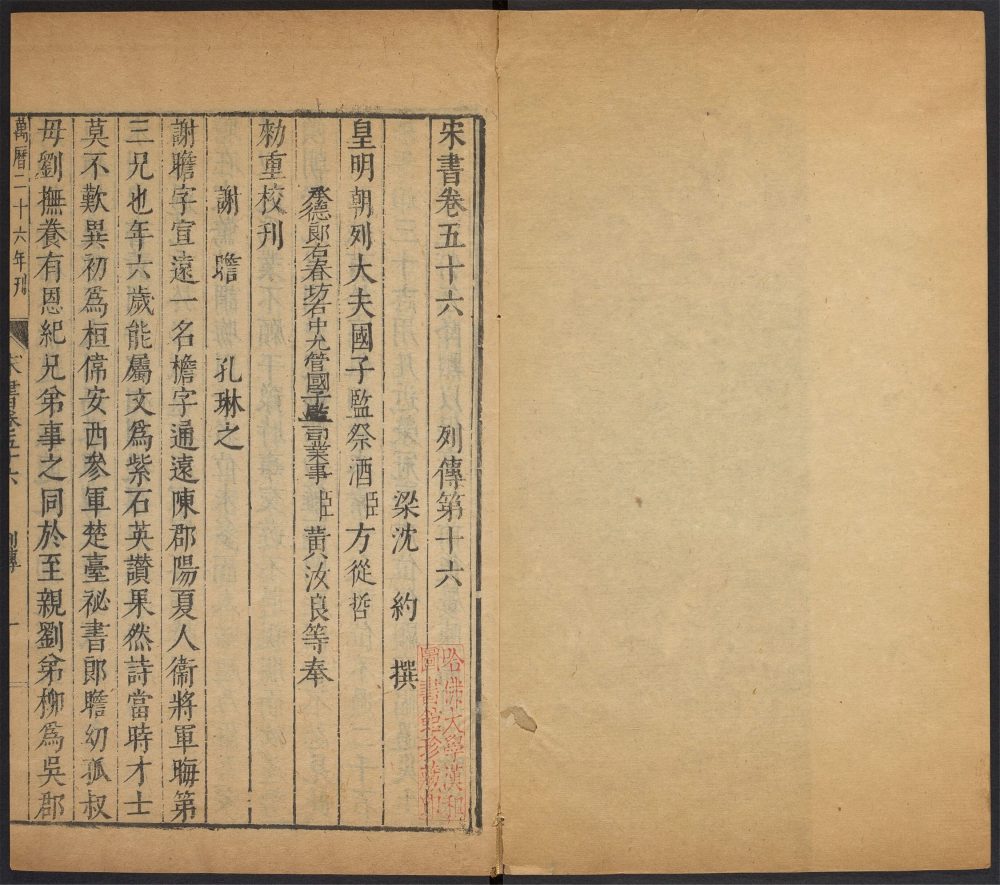 宋書卷五十六 列傳第十六
梁沈約撰
皇明朝列大夫國子監祭酒臣方從哲
承德郎右春坊右中允管國子監司業事臣黃汝良等奉
勑重校刊
謝瞻 孔琳之
謝瞻字宣遠一名檐字通遠陳郡陽夏人衞將軍晦第
三兄也年六歲能屬文爲紫石英讚果然詩當時才士
莫不歎異初爲桓偉安西參軍楚臺祕書郎瞻幼孤叔
母劉撫養有恩紀兄弟事之同於至親劉弟柳爲吳郡
萬曆二十六年刊
宋書卷五十六 列傳 一
哈佛大學漢和
圖書館珍藏印